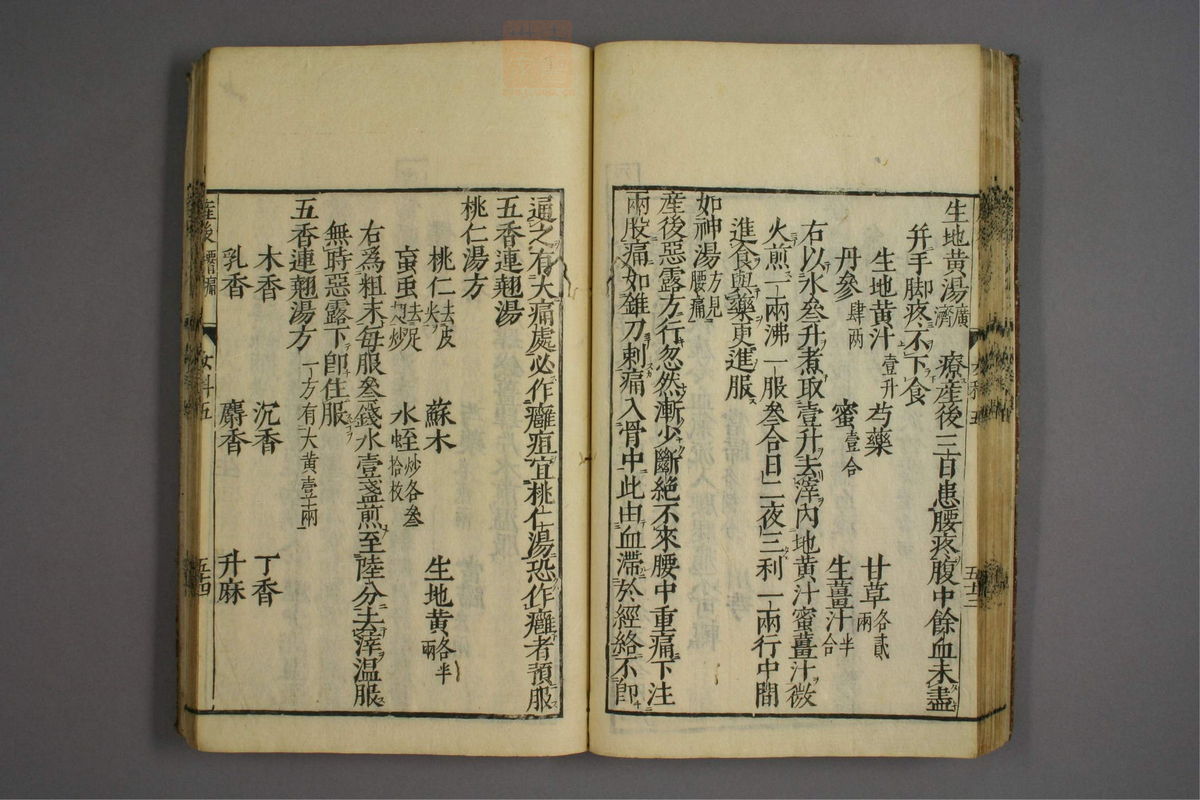 生地黄湯廣濟 療産後三百患腰疼腹中餘血未盡
并手脚疼不下食
生地黄汁壹升 芍藥 甘草各貳兩
丹參肆两 蜜壹合 生薑汁半合
右以水叁升煮取壹升去滓内地黄汁蜜薑汁微
火煎一兩沸一服叁合日二夜三利一兩行中間
進食與藥更進服
如神湯方見腰痛
産後惡露方行忽然漸少斷絶不來腰中重痛下注
兩股痛如錐刀刺痛入骨中此由血滯於經絡不即
通之有大痛處必作癰疽宜桃仁湯恐作癰者預服
五香連翹湯
桃仁湯方
桃仁去皮尖 蘇木 生地黄各半兩
䖟虫去足翅炒 水蛭炒各叁拾枚
右為粗末毎服叁錢水壹盞煎至陸分去滓温服
無時惡露下即住服
五香連翹湯方一方有大黄壹兩
木香 沉香 丁香
乳香 麝香 升麻
産後腰痛 女科五 五十四